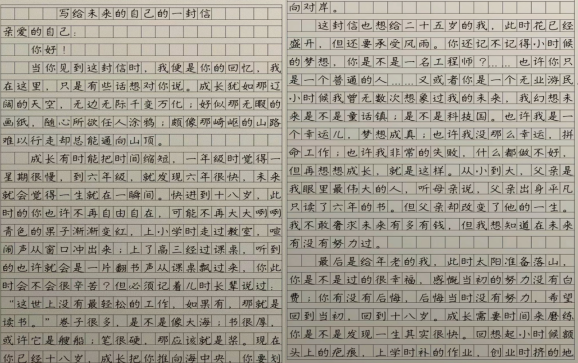 写给未来的自己的一封信
亲爱的自己：
你好！
当你见到这封信时，我便是你的回忆，我
在这里，只是有些话想对你说。成长犹如那辽
阔的天空，无边无际千变万化；好似那无暇的
画纸，随心所欲任人涂鸦；颇像那崎岖的山路
难以行走却总能通向山顶。
成长有时能把时间缩短，一年级时觉得一
星期很慢，到六年级，就发现六年很快，未来
就会觉得一生就在一瞬间。快进到十八岁，此
时的你也许不再自由自在，可能不再大大咧咧
青色的果子渐渐变红，上小学时走过教室，喧
闹声从窗口冲出来；上了高三经过课桌，听到
的也许就会是一片翻书声从课桌飘过来，你此
时会不会很辛苦？但必须记着儿时长辈说过，
“这世上没有最轻松的工作，如果有，那就是
读书。”卷子很多，是不是像大海；书很厚，
或许它是艘船；笔很硬，那应该就是桨。现在
你已经十八岁，成长把你推向海中央，你要划
向对岸。
这封信也想给二十五岁的我，此时花已经
盛开，但还要承受风雨。你还记不记得小时候
的梦想，你是不是一名工程师？……也许你只
是一个普通的人……又或者你是一个无业游民
小时候我曾无数次想象过我的未来，我幻想未
来是不是童话镇；是不是科技国。也许我是一
个幸运儿，梦想成真；也许我没那么幸运，拼
命工作；也许我非常的失败，什么都做不好，
但再想想成长，就是这样。从小到大，父亲是
我眼里最伟大的人，听母亲说，父亲出身平凡
只读了六年的书。但父亲却改变了他的一生。
我不敢奢求未来有多有钱，但我想知道在未来
有没有努力过。
最后是给年老的我，此时太阳准备落山，
你是不是过的很幸福，感慨当初的努力没有白
费；你有没有后悔，后悔当时没有努力，希望
回到当初，回到十八岁。成长需要时间来磨练
你是不是发现一生其实很快。回想起小时候额
头上的疤痕，上学时补的作业，创业时挤的地